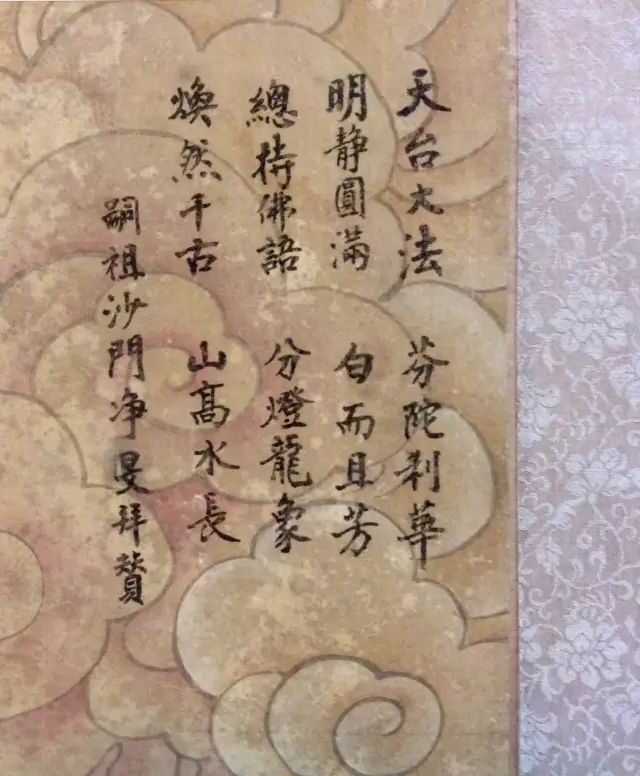 天台大法 芬陀利華
明靜圓滿 白而且芳
總持佛語 分燈龍象
煥然千古 山髙水長
嗣祖沙門净旻拜贊